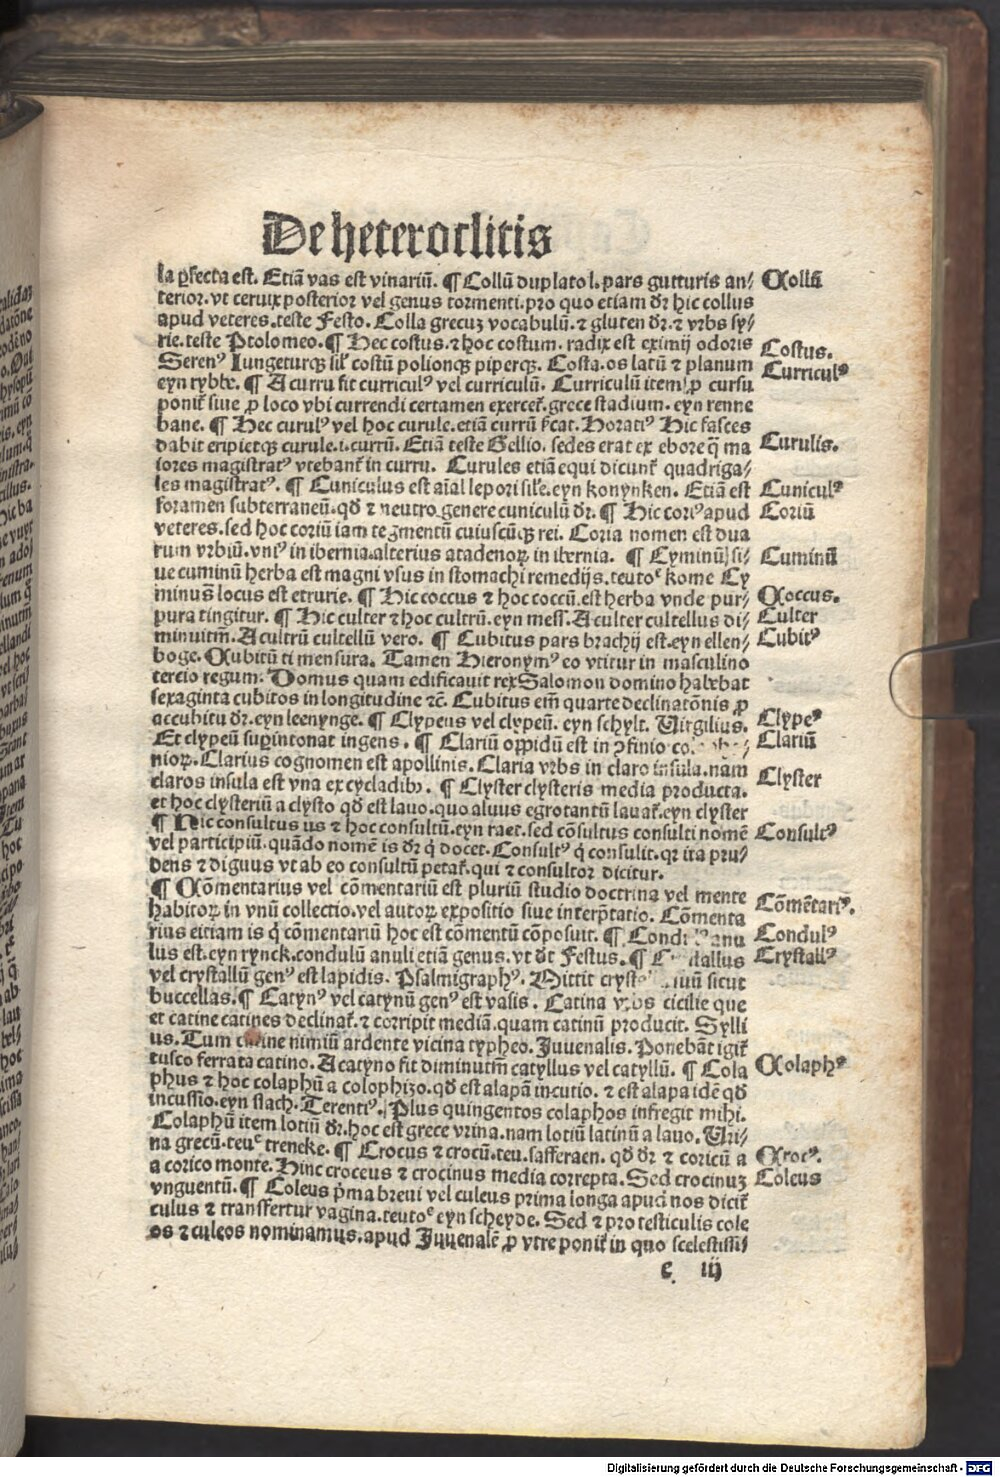 De heteroclitis
la ꝑfecta est. Etiā vas est vinariū. ¶ Collū duplato l. pars gutturis an⸗ Collū
terior. vt ceruix posterior vel genus tormenti. pro quo etiam dr̄ hic collus
apud veteres. teste Festo. Colla grecuꝫ vocabulū. ⁊ gluten dr̄. ⁊ vrbs sy⸗
rie. teste Ptolomeo. ¶ Hec costus. ⁊ hoc costum. radix est eximij odoris Costus.
Serenꝰ Iungeturqꝫ sil̓ costū polionqꝫ piperqꝫ. Costa. os latū ⁊ planum
eyn rybbe. ¶ A curru fit curriculꝰ vel curriculū. Curriculū item ꝓ cursu Curriculꝰ
ponit̄ siue ꝓ loco vbi currendi certamen exercet̄. grece stadium. eyn renne
bane. ¶ Hec curulꝰ vel hoc curule. etiā currū ſcat. Horatiꝰ Hic fasces
dabit eripietqꝫ curule. i. currū. Etiā teste Gellio. sedes erat ex ebore q̄ ma Curulis.
iores magistratꝰ vtebant̄ in curru. Curules etiā equi dicunt̄ quadriga⸗
les magistratꝰ. ¶ Cuniculus est aīal lepori sil̓e. eyn konynken. Etiā est Cuniculꝰ
foramen subterraneū. qd̄ ⁊ neutro genere cuniculū dr̄. ¶ Hic coriꝰ apud Coriū
veteres. sed hoc coriū iam tegmentū cuiuscūqꝫ rei. Coria nomen est dua
rum vrbiū. vniꝰ in ibernia. alterius atadenoꝝ in ibernia. ¶ Cyminū si⸗ Cuminū
ue cuminū herba est magni vsus in stomachi remedijs. teutoᵉ kome Cy
minus locus est etrurie. ¶ Hic coccus ⁊ hoc coccū. est herba vnde pur⸗ Coccus.
pura tingitur. ¶ Hic culter ⁊ hoc cultrū. eyn mess. A culter cultellus di⸗ Culter
minuitm̄. A cultrū cultellū vero. ¶ Cubitus pars brachij est. eyn ellen⸗ Cubitꝰ
boge. Cubitū ti mensura. Tamen Hieronymꝰ eo vtitur in masculino
tercio regum. Domus quam edificauit rex Salomon domino habebat
sexaginta cubitos in longitudine ⁊c̄. Cubitus em̄ quarte declinatōnis ꝓ
accubitu dr̄. eyn leenynge. ¶ Clypeus vel clypeū. eyn schylt. Virgilius. Clypeꝰ
Et clypeū suꝑintonat ingens. ¶ Clariū oppidū est in ꝯfinio Clariū
nioꝝ. Clarius cognomen est apollinis. Claria vrbs in claro insula. nam
claros insula est vna ex cycladibꝫ. ¶ Clyster clysteris media producta. Clyster
et hoc clysteriū a clysto qd̄ est lauo. quo aluus egrotantū lauat̄. eyn clyster
¶ Hic consultus us ⁊ hoc consultū. eyn raet. sed cōsultus consulti nomē Consultꝰ
vel participiū. quādo nomē is dr̄ q̇ docet. Consultꝰ q̇ consulit. qꝛ ita pru⸗
dens ⁊ dignus vt ab eo consultū petat̄. qui ⁊ consultor dicitur.
¶ Cōmentarius vel cōmentariū est pluriū studio doctrina vel mente Cōmētariꝰ.
habitoꝝ in vnū collectio. vel autoꝝ expositio siue interp̄tatio. Cōmenta
rius etiam is q̇ cōmentariū hoc est cōmentū cōposuit. ¶ anu Condulꝰ
lus est. eyn rynck. condulū anuli etiā genus. vt dt̄ Festus. ¶ Crystallꝰ
vel crystallū genꝰ est lapidis. Psalmigraphꝰ. Mittit sicut
buccellas. ¶ Catynꝰ vel catynū genꝰ est vasis. Catina vrbs cicilie que
et catine catines declinat̄. ⁊ corripit mediā. quam catinū producit. Sylli
us. Tum catine nimiū ardente vicina typheo. Juuenalis. Ponebāt igit̄
tusco ferrata catino. A catyno fit diminutm̄ catyllus vel catyllū. ¶ Cola Colaphꝰ
phus ⁊ hoc colaphū a colophizo. qd̄ est alapā incutio. ⁊ est alapa idē qd̄
incussio. eyn slach. Terentiꝰ. Plus quingentos colaphos infregit mihi.
Colaphū item lotiū dr̄. hoc est grece vrina. nam lotiū latinū a lauo. Vri⸗
na grecū. teuᵉ treneke. ¶ Crocus ⁊ crocū. teu. safferaen. qd̄ dr̄ ⁊ coricū a Crocꝰ.
a corico monte. Hinc crocceus ⁊ crocinus media correpta. Sed crocinuꝫ Coleus
vnguentū. ¶ Coleus p̄ma breui vel culeus prima longa apud nos dicit̄
culus ⁊ transfertur vagina. teutoᵉ eyn scheyde. Sed ⁊ pro testiculis cole
os ⁊ culeos nominamus. apud Juuenalē ꝓ vtre ponit̄ in quo scelestissi⸗
c iij
Digitalisierung gefördert durch die Deutsche Forschungsgemeinschaft - DFG